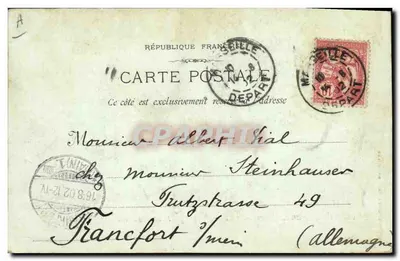 A
RÉPUBLIQUE FRAN
CARTE POSTALE
Ce côté est exclusivement réservé adresse
MARSEILLE
DÉPART
MARSEILLE
DÉPART
Monsieur Albert Vial
chez Monsieur Steinhauser
Trutzstrasse 49
Francfort s/mein (Allemagne)
16.8.02